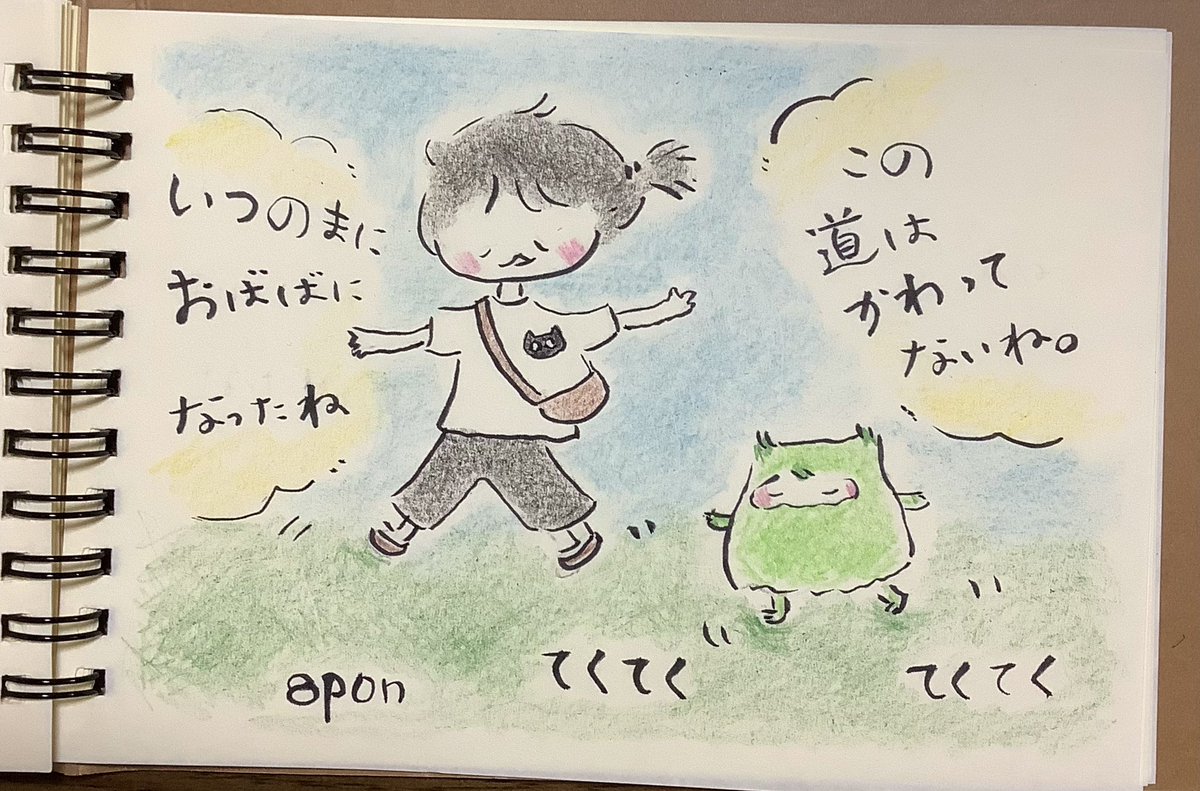 この
道は
かわって
ないね。
いつのまに
おばばに
なったね
てくてく
てくてく
apon